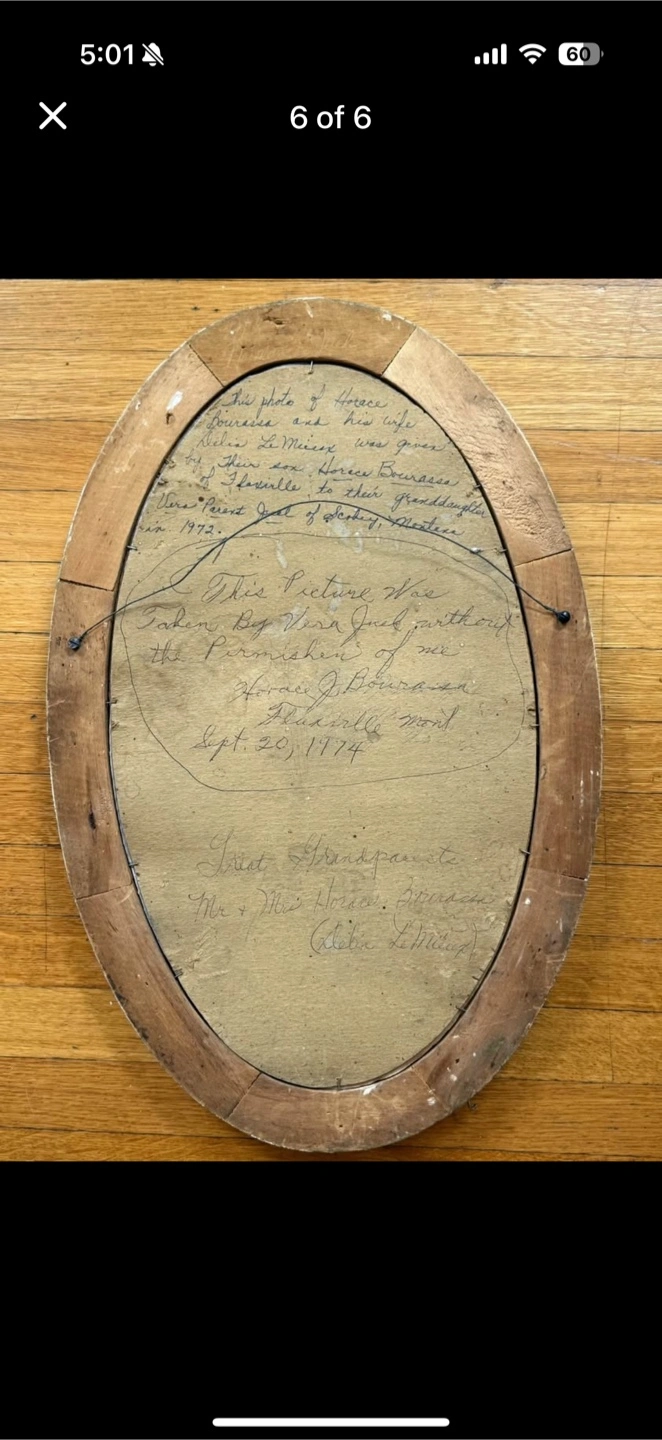 5:01
60
6 of 6
This photo of Horace
Bourassa and his wife
Delia LeMieux was given
by their son Horace Bourassa
of Flaxville to their granddaughter
Vera Parent Jual of Scobey, Montana
in 1972.
This Picture Was
Taken By Vera Jual without
the Permishen of me
Horace J Bourassa
Flaxville Mont
Sept. 20, 1974
Great Grandparents
Mr + Mrs Horace Bourassa
(Delia LeMieux)